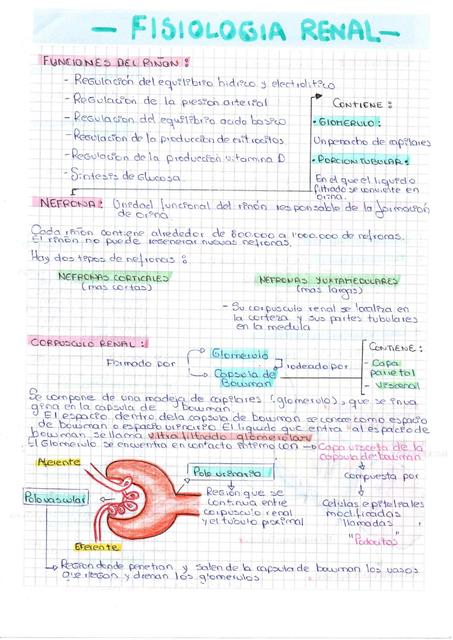 — FISIOLOGIA RENAL—
FUNCIONES DEL RIÑON:
- Regulación del equilibrio hidrico y electrolitico
- Regulacion de la presion arterial
- Regulacion del equilibrio acido basico
- Regulacion de la produccion de eritrocitos
- Regulacion de la produccion vitamina D
- Sintesis de Glucosa
CONTIENE:
• GLOMERULO:
Un penacho de capilares
• PORCION TUBULAR:
En el que el liquido
filtrado se convierte en
orina.
NEFRONA: Unidad funcional del riñon responsable de la formación
de orina
Cada riñon contiene alrededor de 800.000 a 1'000.000 de nefronas.
El riñon no puede regenerar nuevas nefronas.
Hay dos tipos de nefronas:
NEFRONAS CORTICALES
(mas cortas)
NEFRONAS YUXTAMEDULARES
(mas largas)
- Su corpusculo renal se localiza en
la corteza y sus partes tubulares
en la medula
CORPUSCULO RENAL:
Formado por
Glomerulo
Capsula de
Bowman
rodeado por
CONTIENE:
- Capa
parietal
- Visceral
Se compone de una madeja de capilares (glomerulo), que se invagina en la capsula de bowman
El espacio dentro de la capsula de bowman se conoce como espacio
de bowman o espacio urinario. El liquido que entra al espacio de
bowman se llama ultrafiltrado glomerular
El Glomerulo se encuentra en contacto interno con → Capa visceral de la
capsula de bowman
compuesta por
Celulas epiteliales
modificadas
llamadas
"Podocitos"
Aferente
Polo vascular
Eferente
Polo urinario
Region que se
continua entre
corpusculo renal
y el tubulo proximal
Region donde penetran y salen de la capsula de bowman los vasos
que irrigan y drenan los glomerulos